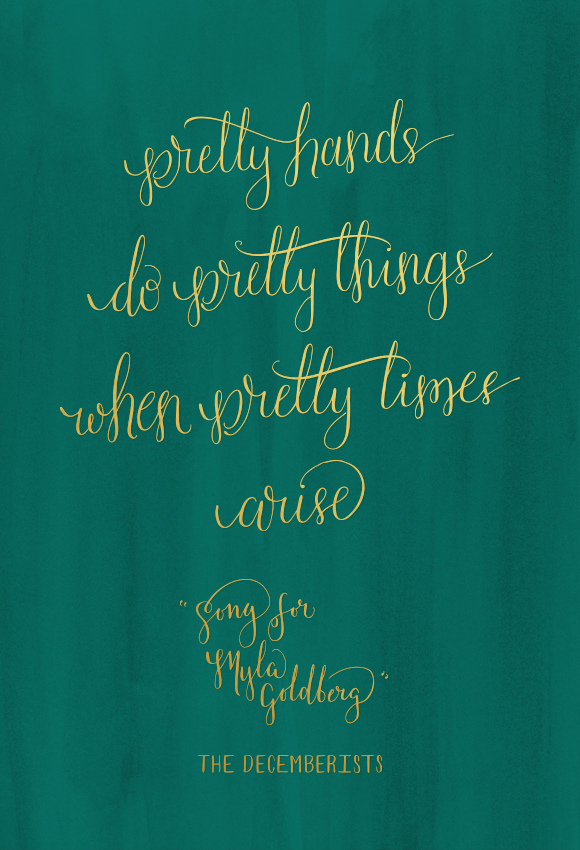 pretty hands
do pretty things
when pretty times
arise
"Song for
Myla
Goldberg"
THE DECEMBERISTS